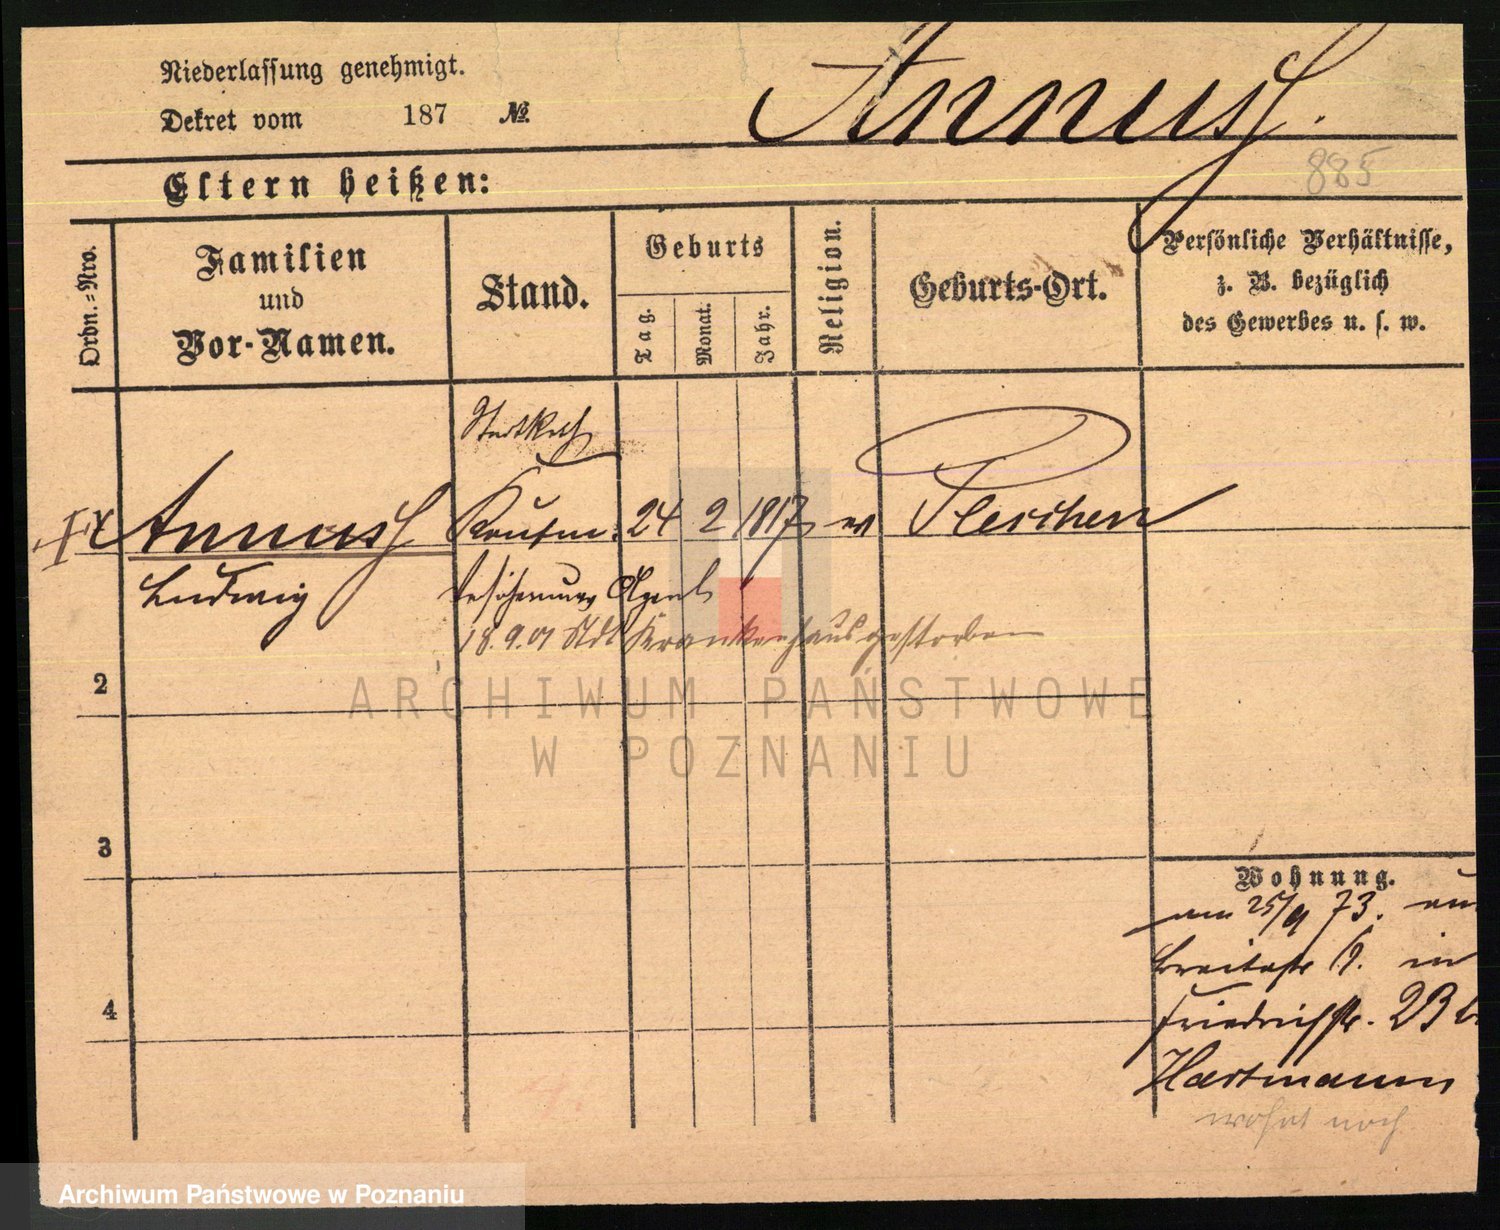 Niederlassung genehmigt.
Dekret vom 187 №
Annuss.
885
Eltern heißen:
Ordn.=Nro.
Familien
und
Vor-Namen.
Stand.
Geburts
Tag.
Monat.
Jahr.
Religion.
Geburts-Ort.
Persönliche Verhältnisse,
z. B. bezüglich
des Gewerbes u. s. w.
Annuss Kaufm. 24 2 1817 ev Pleschen
Ludwig
Agent
18.9.01 Stdt Krankenhaus gestorben
2
ARCHIWUM PAŃSTWOWE
W POZNANIU
3
4
Wohnung.
am 25/9 73.
Breitestr in
Friedrichstr. 23 b.
Hartmann
wohnt noch
Archiwum Państwowe w Poznaniu